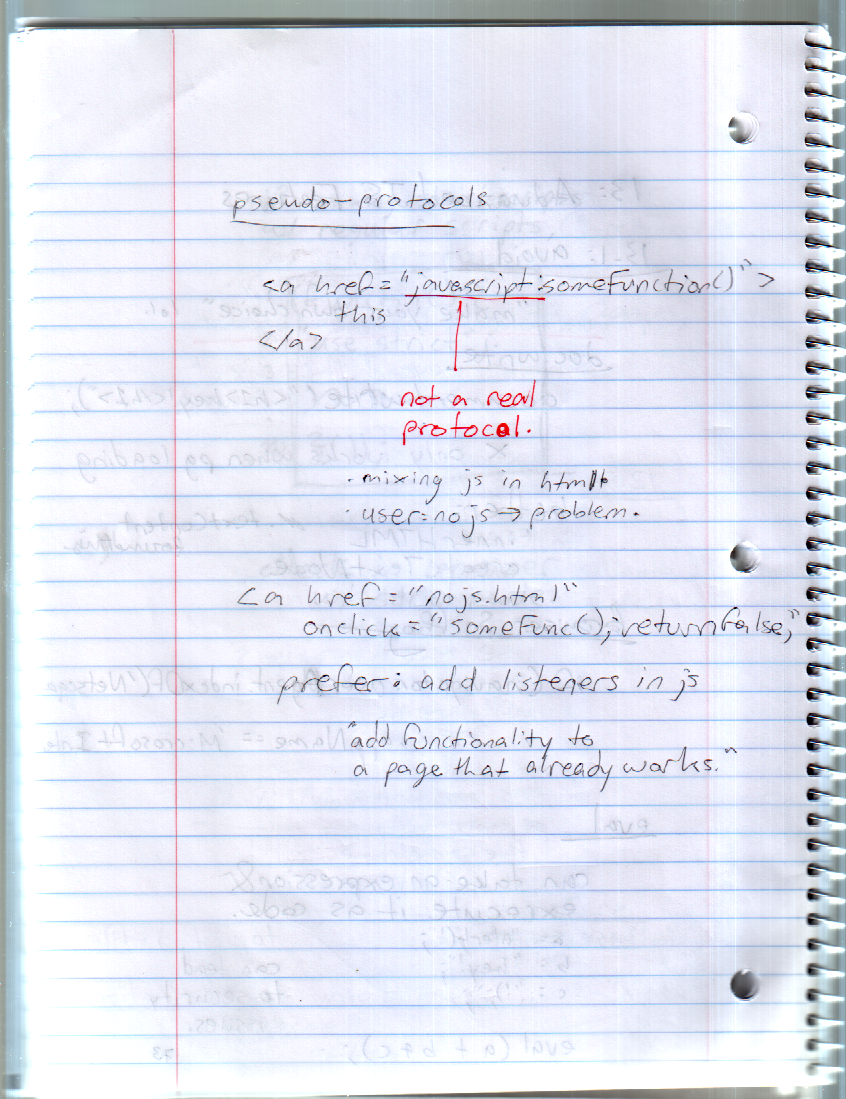 pseudo-protocols
<a href="javascript:someFunction()">
this
</a>
not a real
protocol.
· mixing js in html
· user=no js → problem.
<a href="nojs.html"
onclick="someFunc(); return false;"
prefer: add listeners in js
"add functionality to
a page that already works."